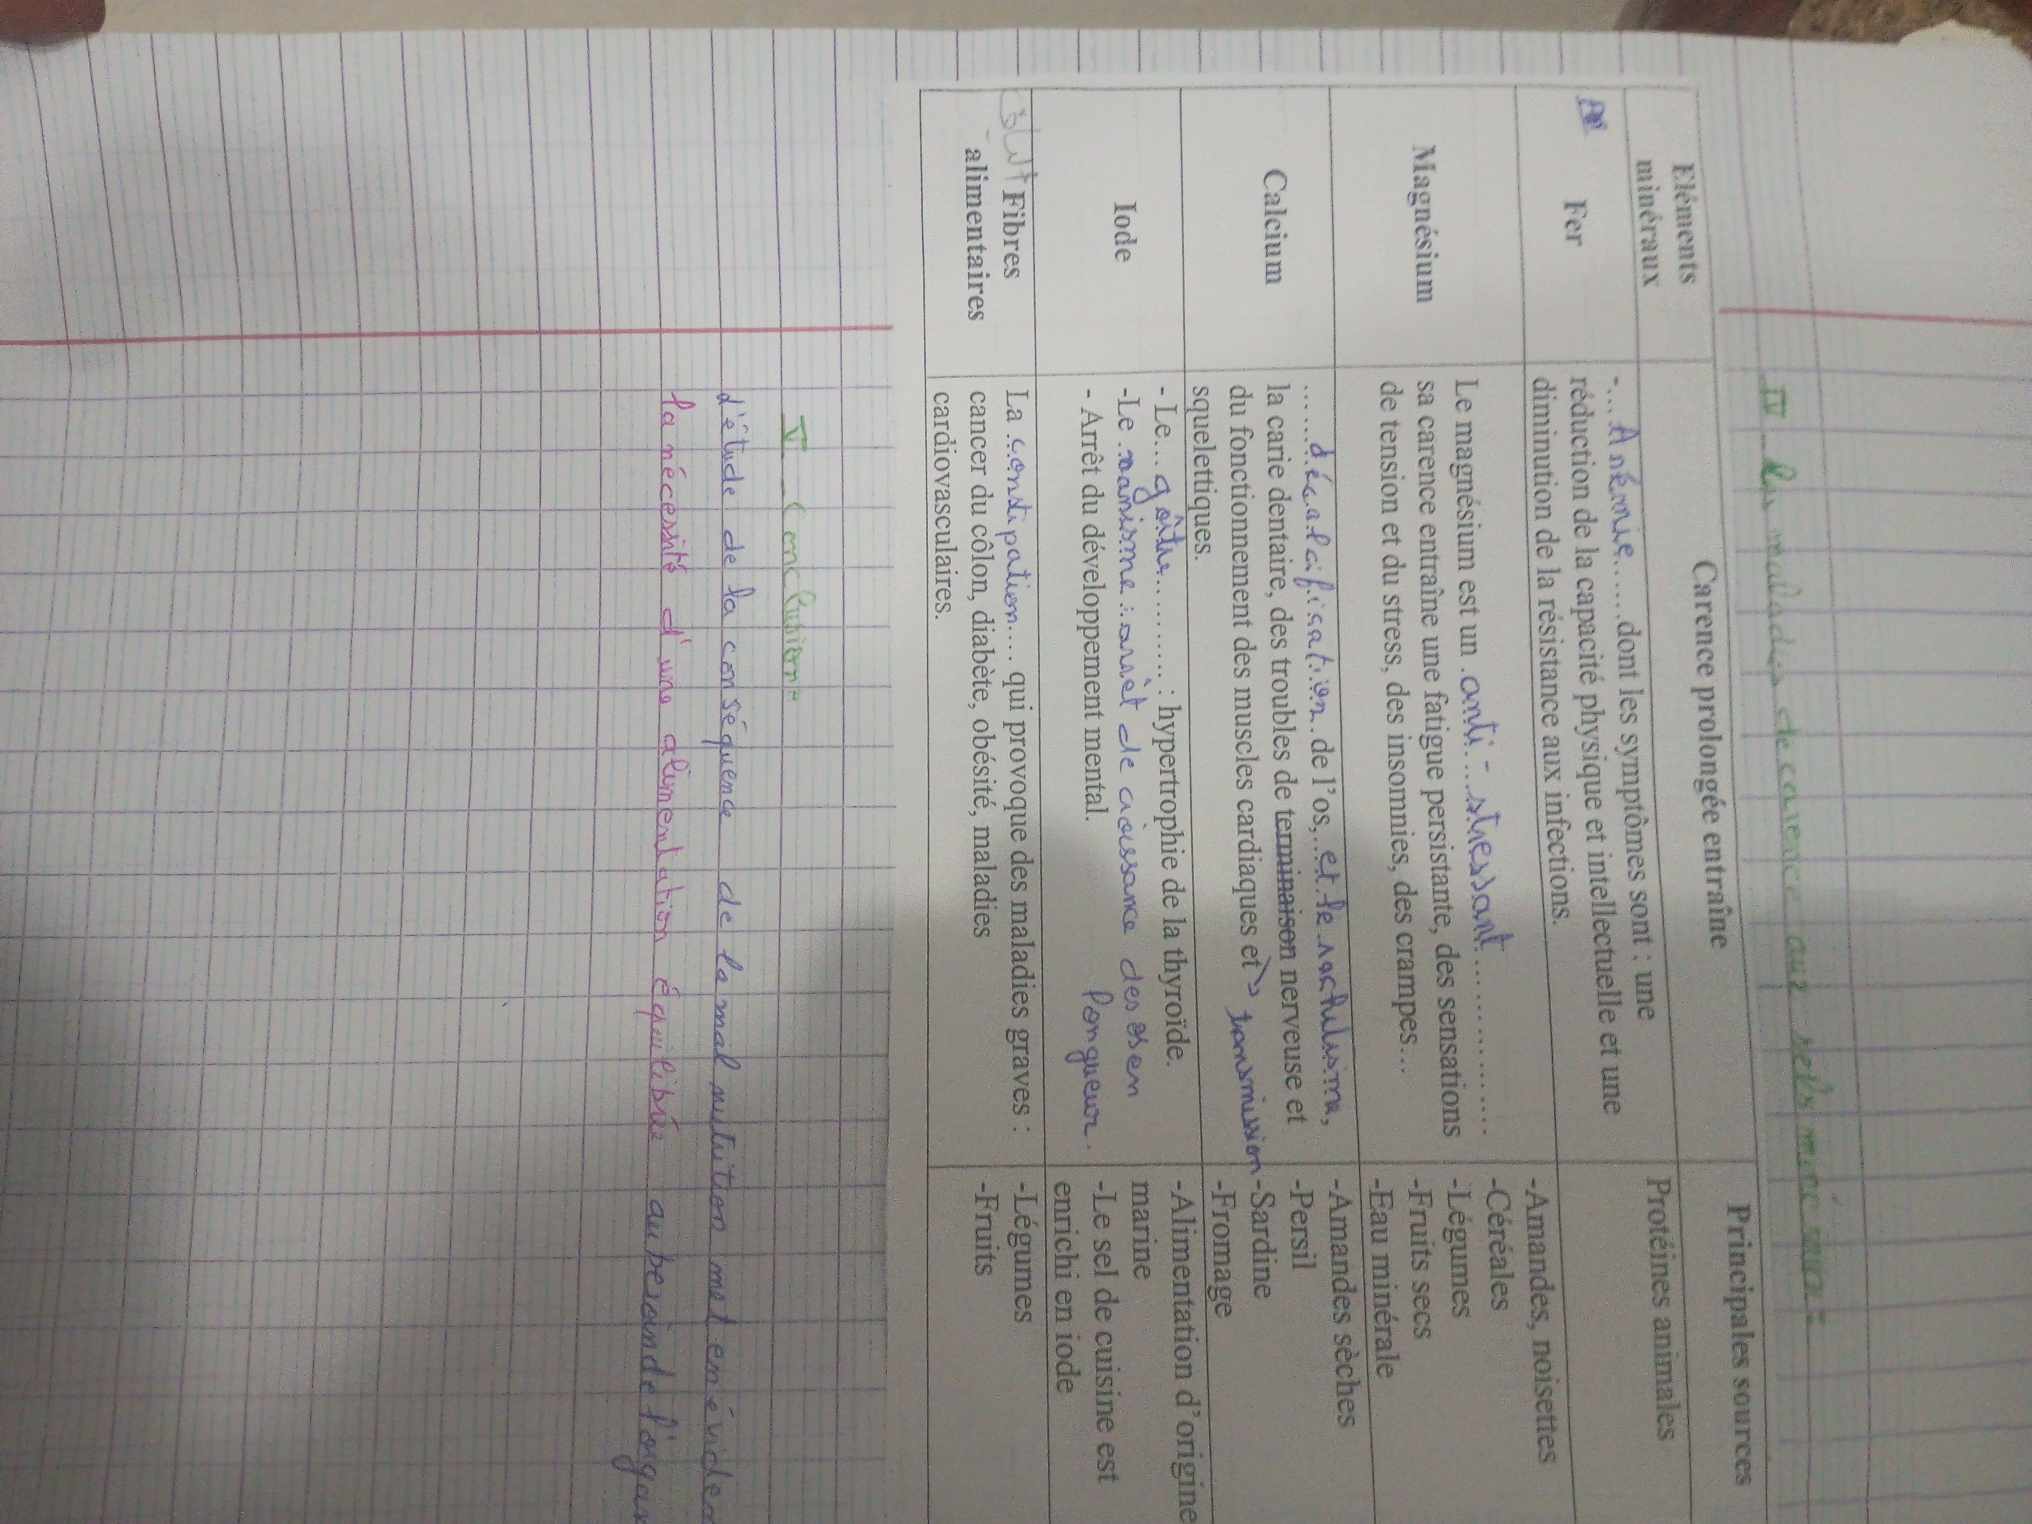 IV - Les maladies de carence aux sels minéraux =
Eléments minéraux
Carence prolongée entraîne
Principales sources
Fer
-...Anémie.......dont les symptômes sont : une
réduction de la capacité physique et intellectuelle et une
diminution de la résistance aux infections.
Protéines animales
Magnésium
Le magnésium est un .anti-stressant.................
sa carence entraîne une fatigue persistante, des sensations
de tension et du stress, des insomnies, des crampes…
-Amandes, noisettes
-Céréales
-Légumes
-Fruits secs
-Eau minérale
Calcium
......décalcification. de l'os,..et le rachitisme,
la carie dentaire, des troubles de terminaison nerveuse et
du fonctionnement des muscles cardiaques et transmission
squelettiques.
-Amandes sèches
-Persil
-Sardine
-Fromage
Iode
- Le...goître........... : hypertrophie de la thyroïde.
-Le .nanisme : arrêt de croissance des os en
longueur.
- Arrêt du développement mental.
-Alimentation d'origine
marine
-Le sel de cuisine est
enrichi en iode
Fibres
alimentaires
La .constipation.... qui provoque des maladies graves :
cancer du côlon, diabète, obésité, maladies
cardiovasculaires.
-Légumes
-Fruits
V - Conclusion =
L'étude de la conséquence de la mal nutrition met en
la nécessité d'une alimentation équilibrée au besoin de